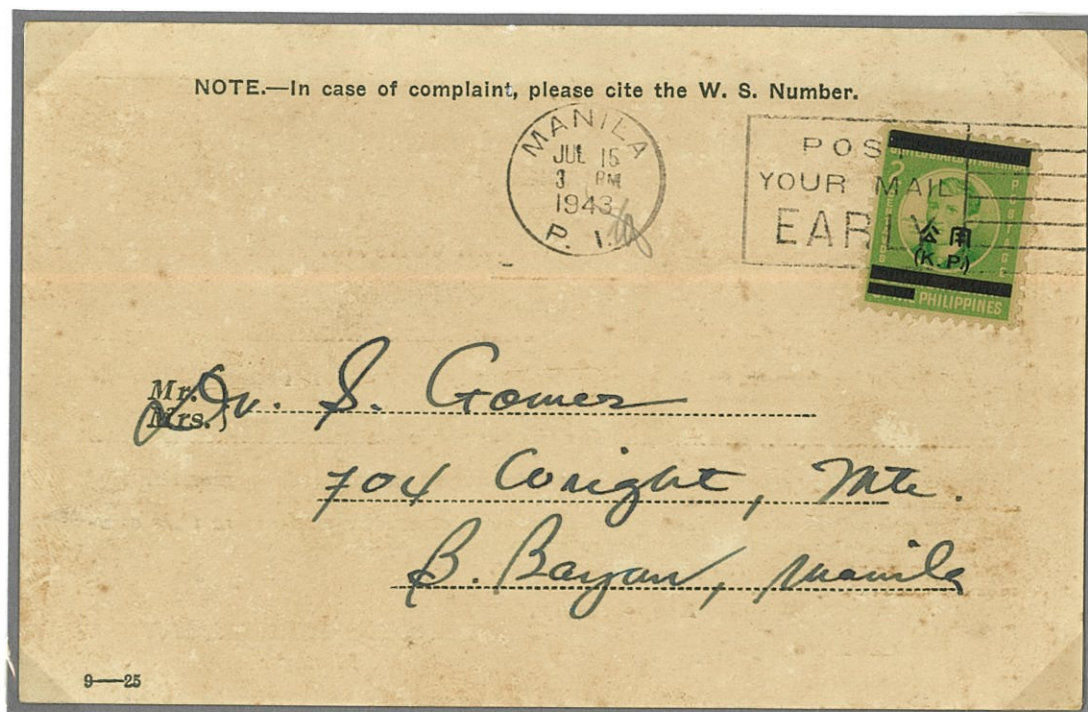 NOTE.—In case of complaint, please cite the W. S. Number.
MANILA
JUL 15
3 PM
1943
P. I.
POST
YOUR MAIL
EARLY
2
公用
(K. P.)
PHILIPPINES
Mr.
Mrs.
Dr. S. Gomez
704 Wright, Mte.
B. Bayan, Manila
9—25